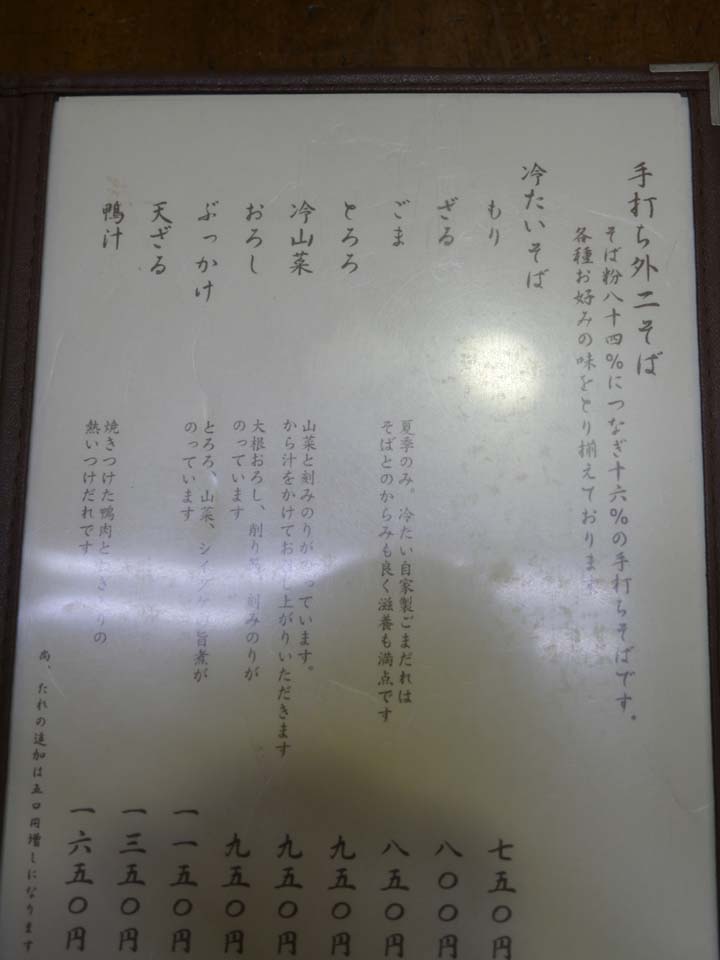 手打ち外二そば
そば粉八十四%につなぎ十六%の手打ちそばです。
各種お好みの味をとり揃えております
冷たいそば
もり 七五〇円
ざる 八〇〇円
ごま 夏季のみ。冷たい自家製ごまだれは
そばとのからみも良く滋養も満点です 八五〇円
とろろ 九五〇円
冷山菜 山菜と刻みのりがのっています。
から汁をかけてお召し上がりいただきます 九五〇円
おろし 大根おろし、削り節、刻みのりが
のっています 九五〇円
ぶっかけ とろろ、山菜、シイタケの旨煮が
のっています 一一五〇円
天ざる 一三五〇円
鴨汁 焼きつけた鴨肉と の
熱いつけだれです 一六五〇円
尚、たれの追加は五〇円増しになります